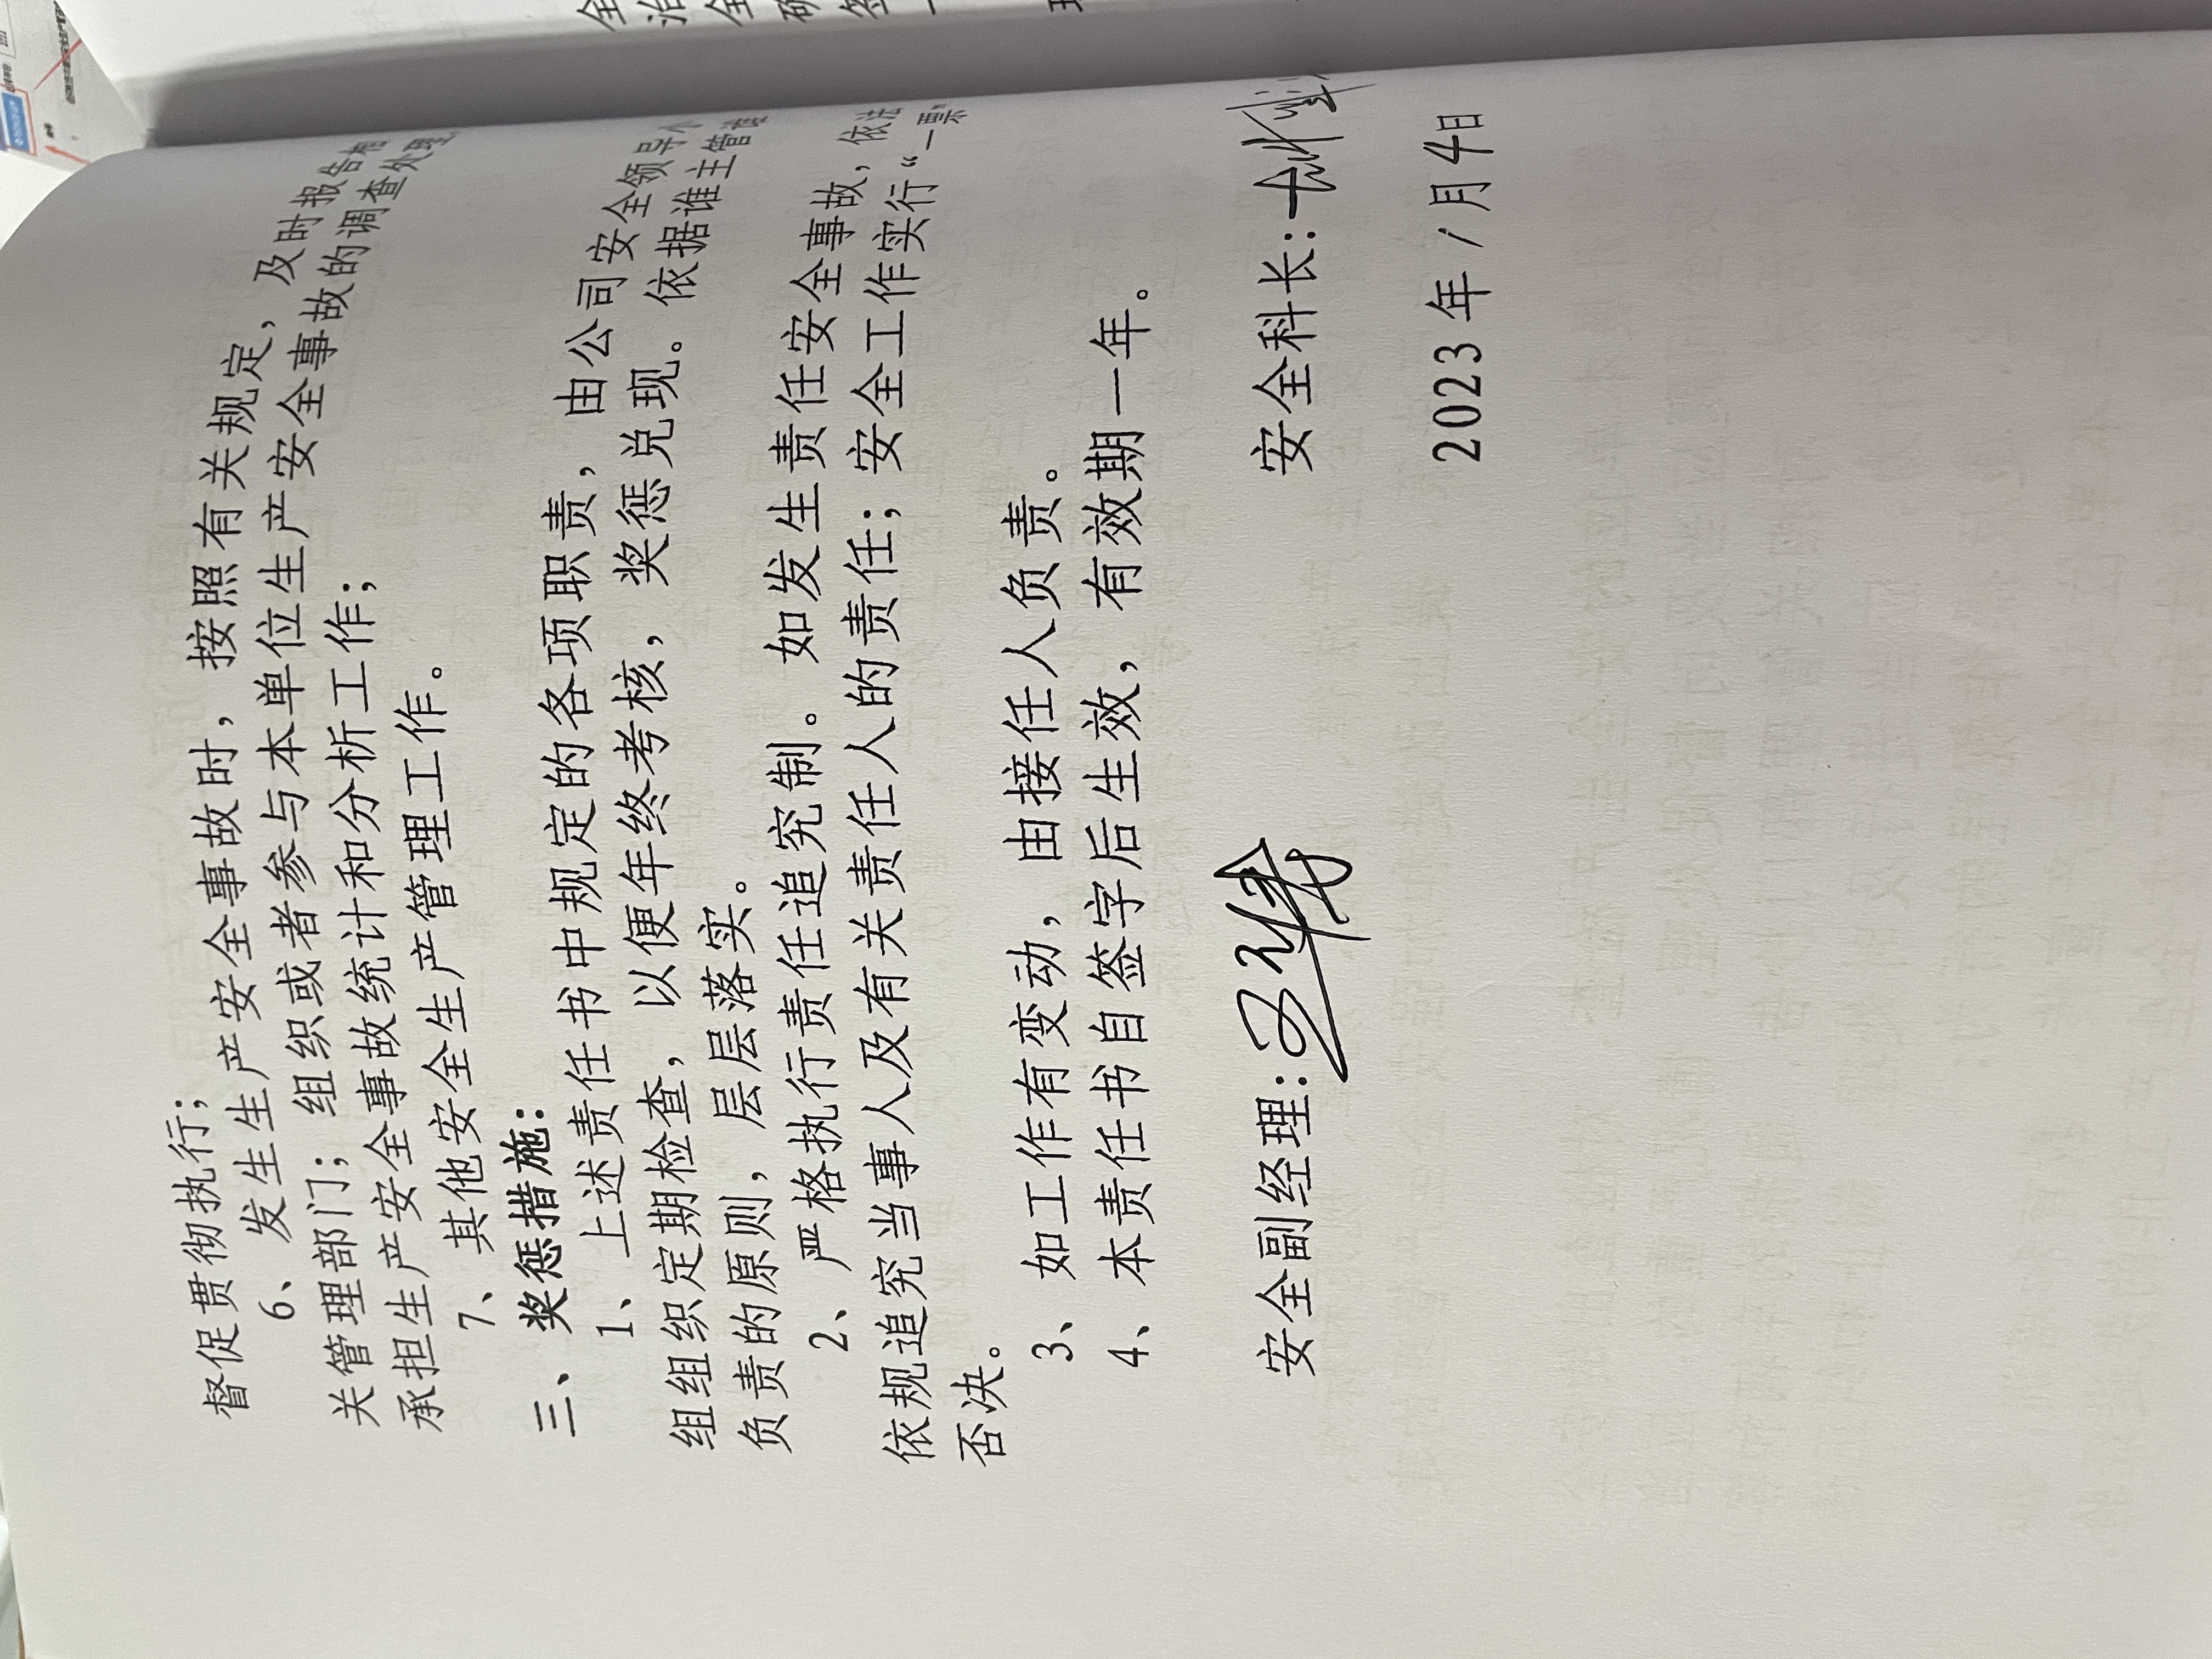 督促贯彻执行；
6、发生生产安全事故时，按照有关规定，及时报告相
关管理部门；组织或者参与本单位生产安全事故的调查处理
承担生产安全事故统计和分析工作；
7、其他安全生产管理工作。
三、奖惩措施：
1、上述责任书中规定的各项职责，由公司安全领导小
组组织定期检查，以便年终考核，奖惩兑现。依据谁主管谁
负责的原则，层层落实。
2、严格执行责任追究制。如发生责任安全事故，依法
依规追究当事人及有关责任人的责任；安全工作实行“一票”
否决。
3、如工作有变动，由接任人负责。
4、本责任书自签字后生效，有效期一年。
安全副经理： 安全科长：
2023年1月4日